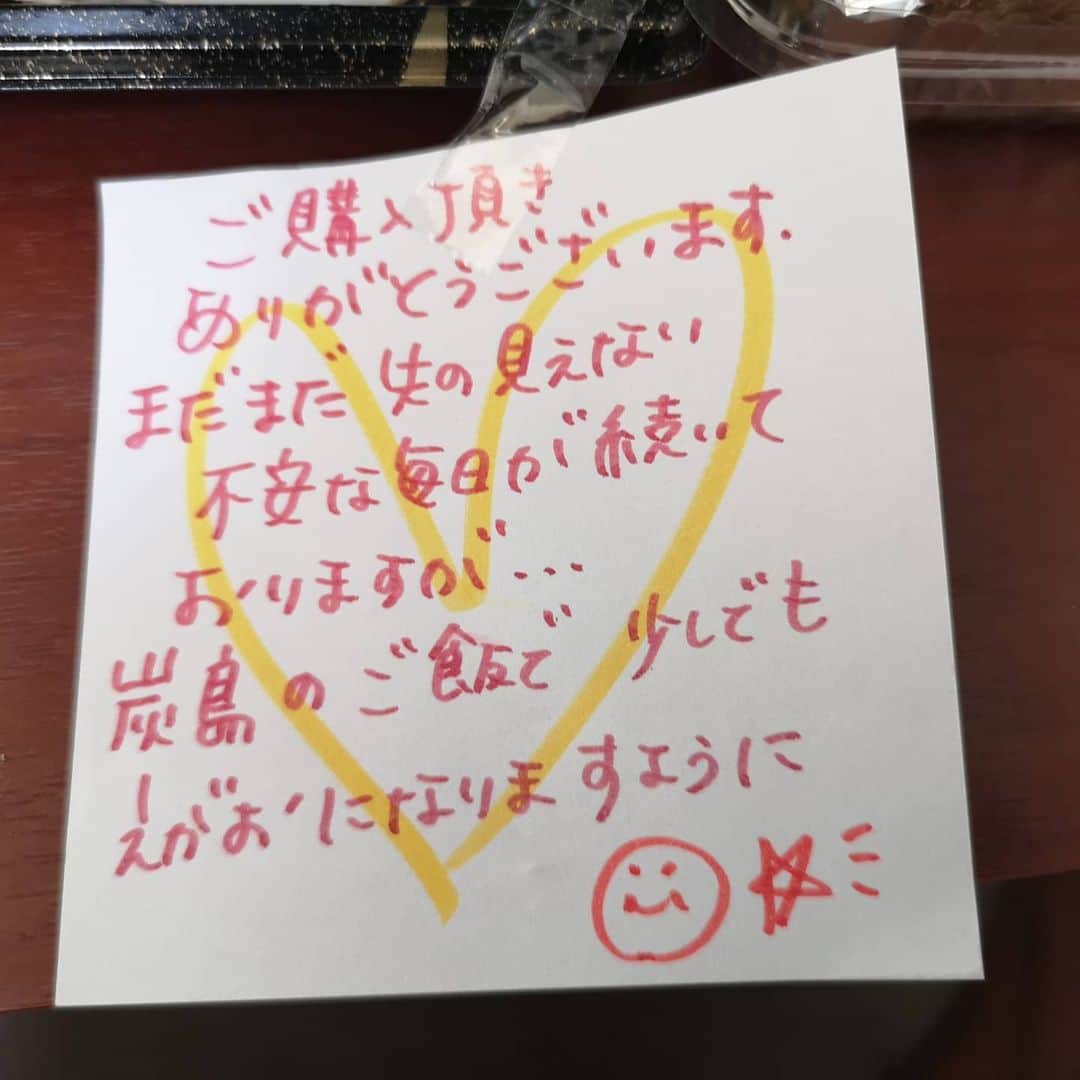 ご購入頂き
ありがとうございます.
まだまだ先の見えない
不安な毎日が続いて
おりますが…
炭島のご飯で少しでも
えがおになりますように